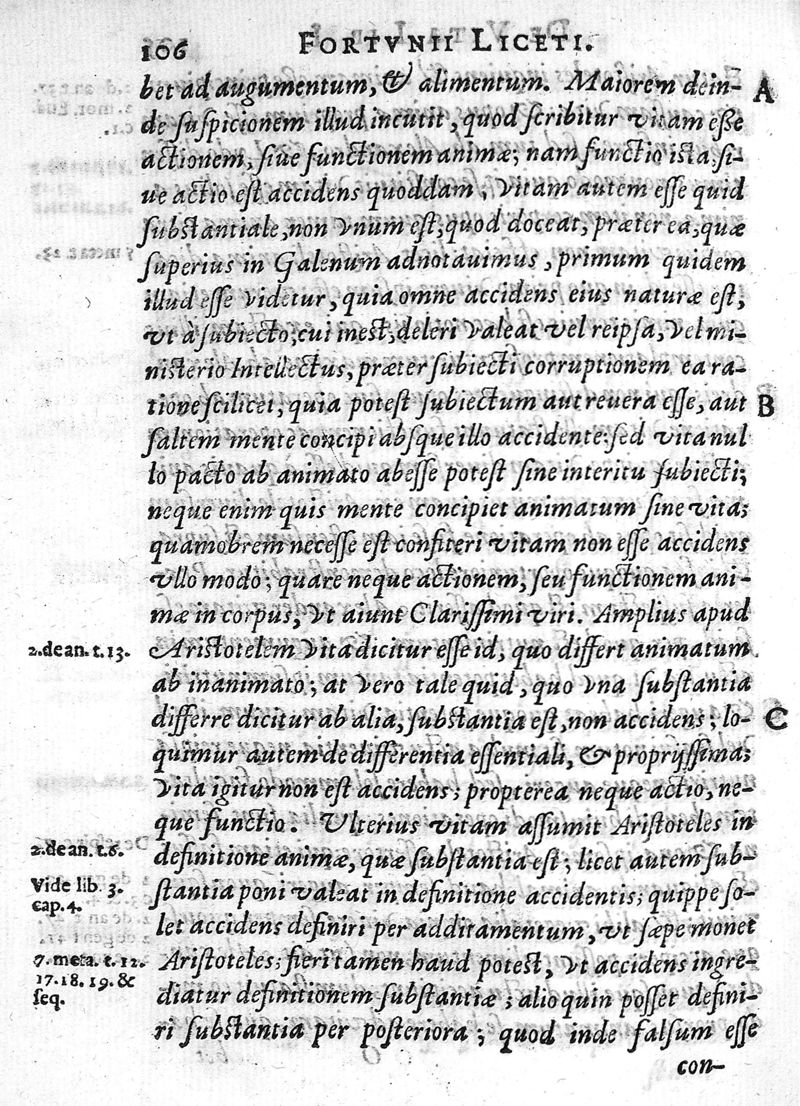 106 FORTVNII LICETI.
bet ad augumentum, & alimentum. Maiorem dein- A
de ſuſpicionem illud incutit, quod ſcribitur vitam eße
actionem, ſiue functionem animæ; nam functio iſta, ſi-
ue actio eſt accidens quoddam, vitam autem eſſe quid
ſubſtantiale, non vnum eſt, quod doceat, præter ea, quæ
ſuperius in Galenum adnotauimus, primum quidem
illud eſſe videtur, quia omne accidens eius naturæ eſt,
vt à ſubiecto, cui ineſt, deleri valeat vel reipſa, vel mi-
niſterio Intellectus, præter ſubiecti corruptionem ea ra-
tione ſcilicet, quia poteſt ſubiectum aut reuera eſſe, aut B
ſaltem mente concipi abſque illo accidente: ſed vita nul
lo pacto ab animato abeſſe poteſt ſine interitu ſubiecti;
neque enim quis mente concipiet animatum ſine vita;
quamobrem neceſſe eſt confiteri vitam non eſſe accidens
vllo modo; quare neque actionem, ſeu functionem ani-
mæ in corpus, vt aiunt Clariſſimi viri. Amplius apud
2. de an. t. 13. Ariſtotelem vita dicitur eſſe id, quo differt animatum
ab inanimato; at vero tale quid, quo vna ſubſtantia
differre dicitur ab alia, ſubſtantia eſt, non accidens; lo- C
quimur autem de differentia eſſentiali, & proprijſſima;
vita igitur non eſt accidens; propterea neque actio, ne-
que functio. Vlterius vitam aſſumit Ariſtoteles in
2. de an. t. 6. definitione animæ, quæ ſubſtantia eſt; licet autem ſub-
Vide lib. 3. ſtantia poni valeat in definitione accidentis; quippe ſo-
cap. 4. let accidens definiri per additamentum, vt ſæpe monet
7. meta. t. 12. Ariſtoteles; fieri tamen haud poteſt, vt accidens ingre-
17. 18. 19. & diatur definitionem ſubſtantiæ; alioquin poſſet defini-
ſeq. ri ſubſtantia per poſteriora; quod inde falſum eſſe
con-